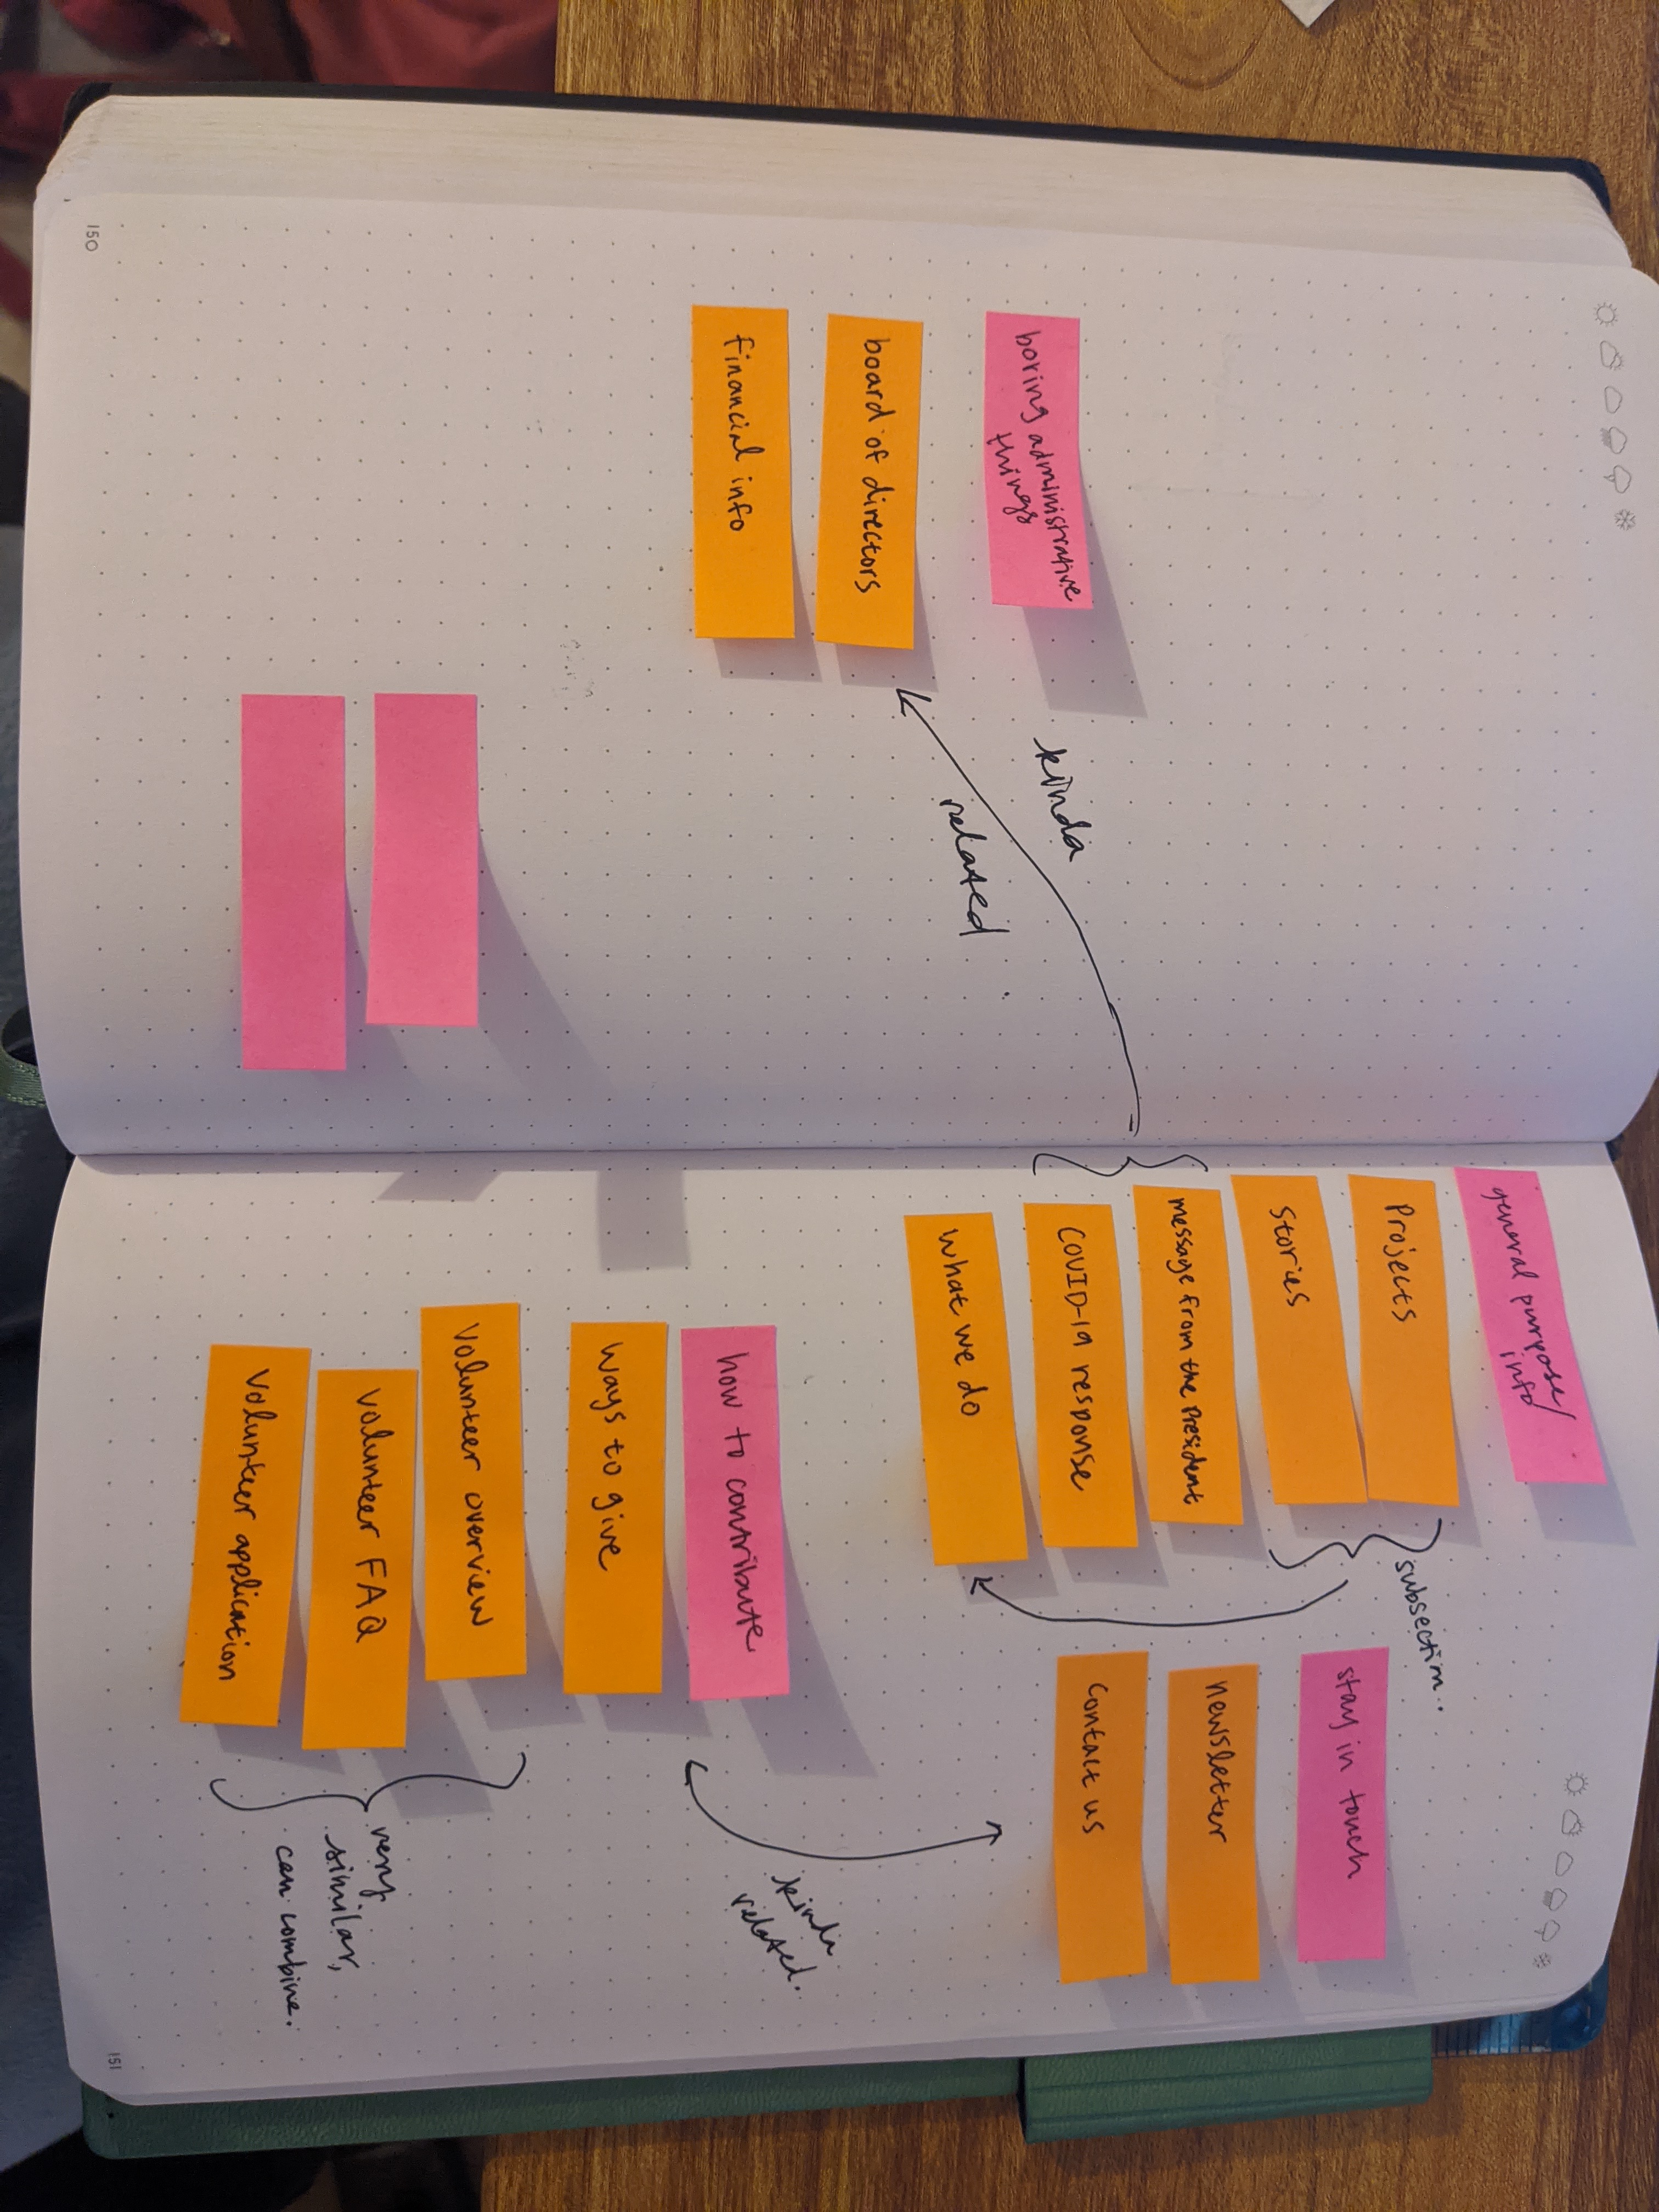 boring administrative
things
board of directors
financial info
kinda
related
150
general purpose/
info
Projects
Stories
subsection..
message from the President
COVID-19 response
what we do
stay in touch
newsletter
Contact us
kinda
related.
how to contribute
ways to give
Volunteer overview
Volunteer FAQ
Volunteer application
very
similar,
can combine.
151